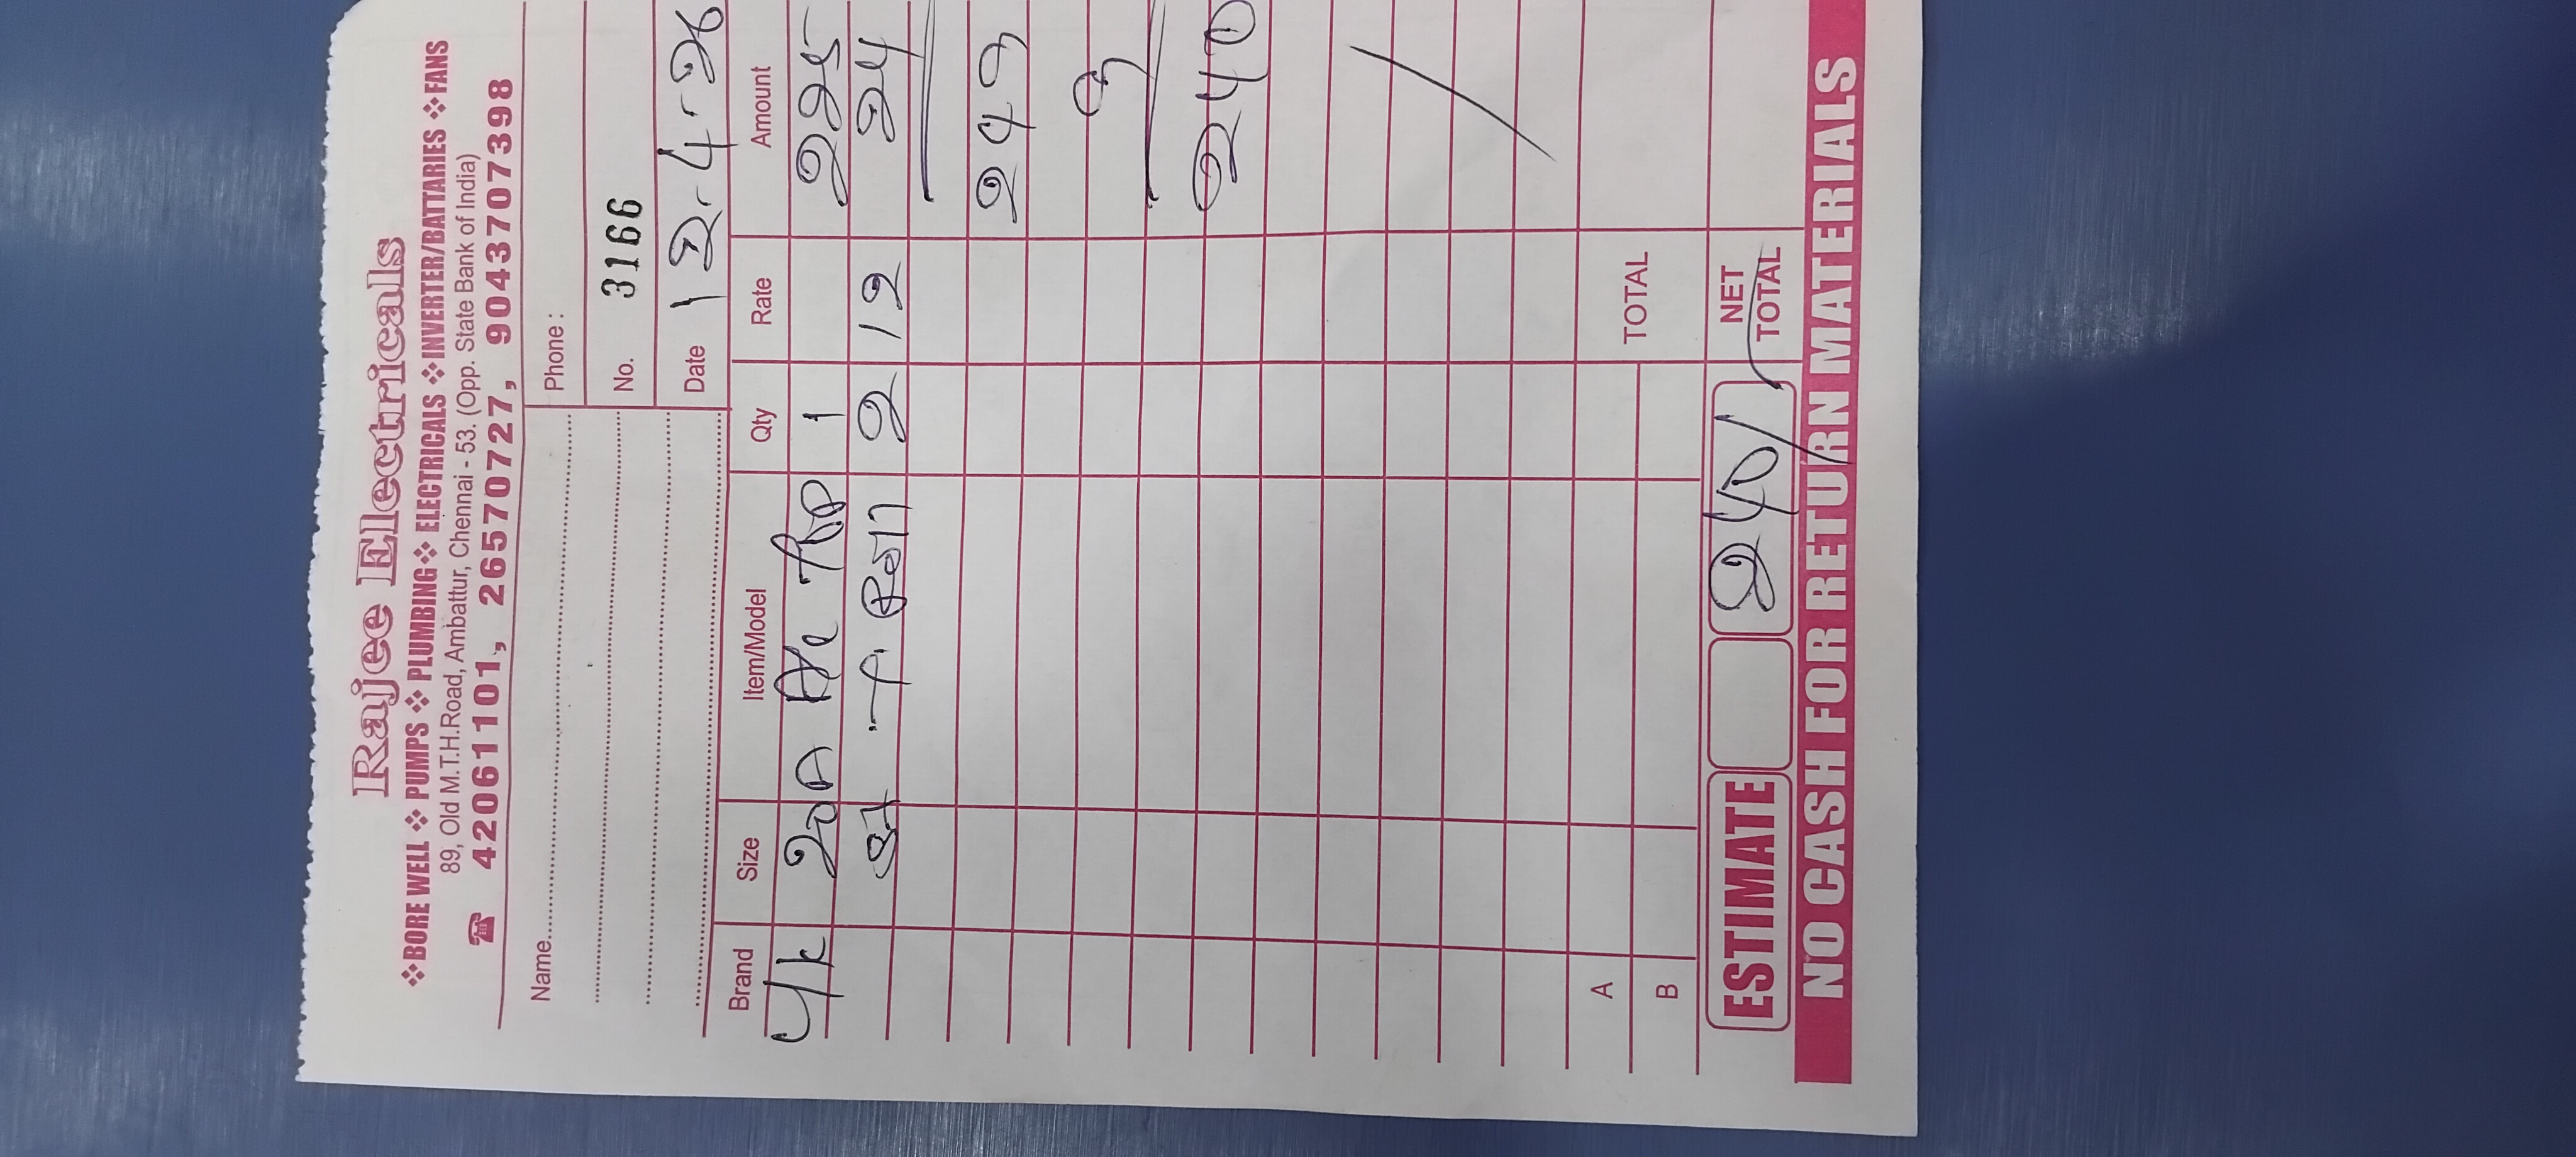 Rajee Electricals
❖BORE WELL ❖ PUMPS ❖ PLUMBING❖ ELECTRICALS ❖INVERTER/BATTARIES ❖FANS
89, Old M.T.H.Road, Ambattur, Chennai - 53. (Opp. State Bank of India)
☎ 42061101, 26570727, 9043707398
Name
Phone :
No. 3166
Date 12-4-26
Brand Size Item/Model Qty Rate Amount
20A 1 225
2 12 24
249
9
240
A
B
TOTAL
ESTIMATE 240/ NET TOTAL
NO CASH FOR RETURN MATERIALS